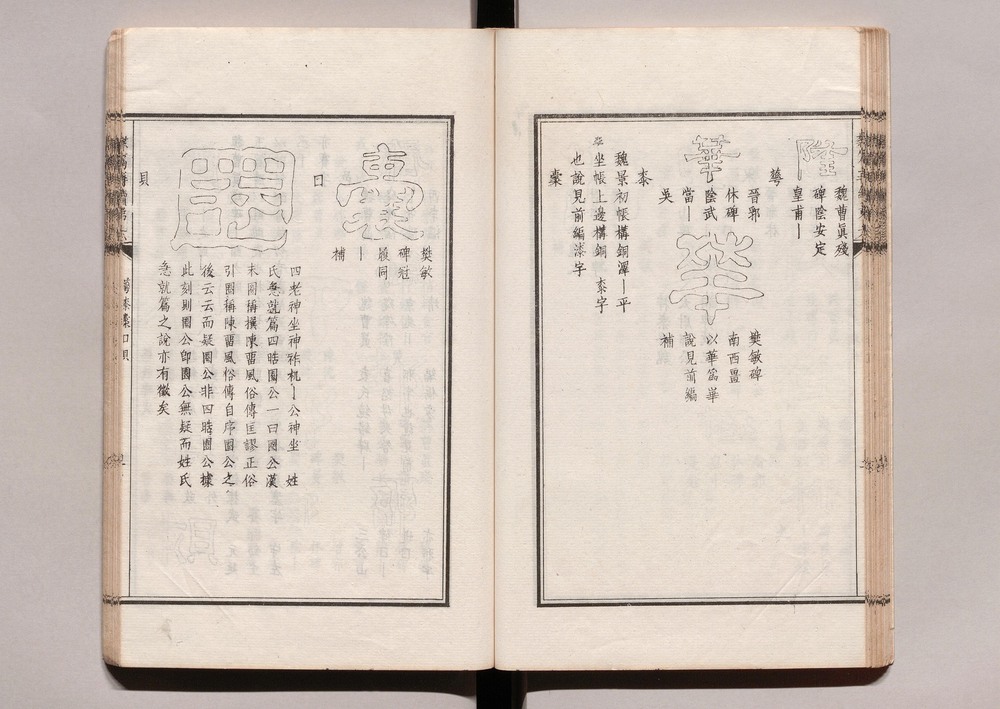 陸
魏曹真殘
碑陰安定
皇甫丨
華
晉鄂
休碑
陰武
當丨
吳
華
樊敏碑
南西畺
以華為華
說見前編
補
桼
魏景初帳構銅潭丨平
坐帳上邊構銅 桼字
也說見前編漆字
橐
橐
樊敏
碑冠
履同
丨
補
囗
四老神坐神祚机丨公神坐 姓
氏急就篇四皓園公一曰圈公漢
末圈稱撰陳畱風俗傳匡謬正俗
引圈稱陳畱風俗傳自序圈公之
後云云而疑圈公非四皓園公據
此刻則園公卽圈公無疑而姓氏
急就篇之說亦有徵矣
貝